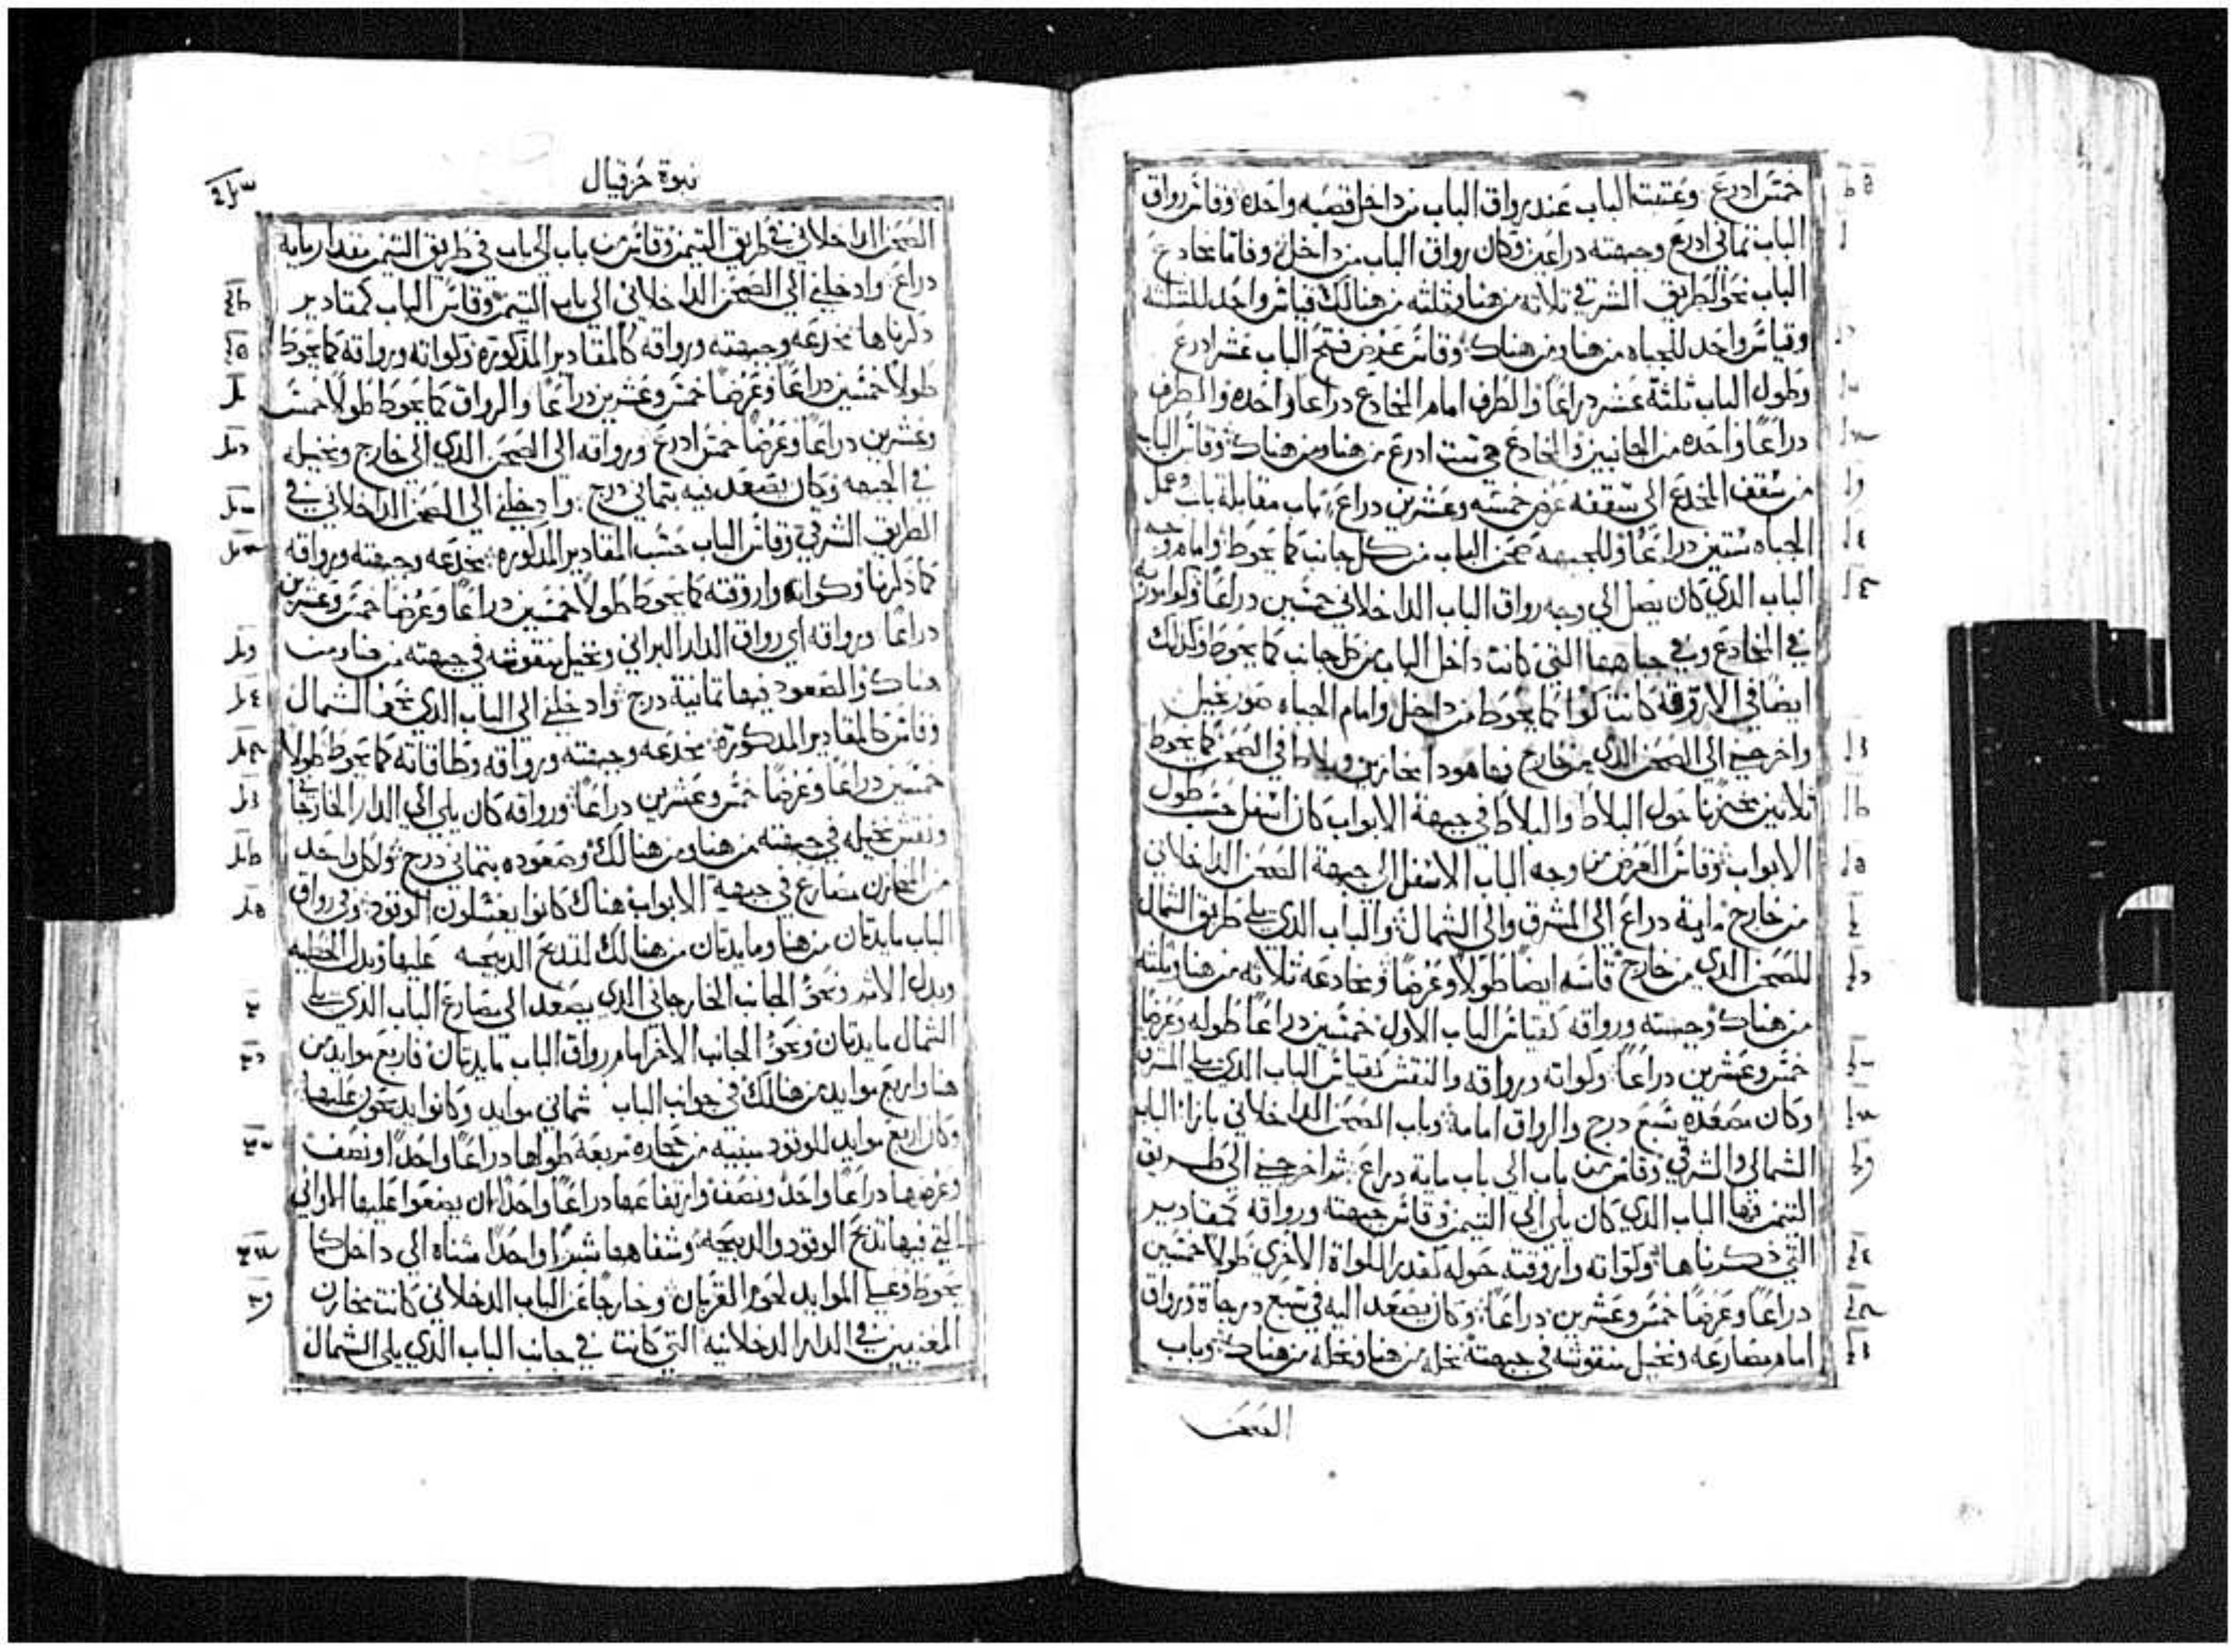 خمس ادرع وعتبة الباب عند رواق الباب من داخل قصبه واحده وقاس رواق
الباب ثماني ادرع وجبهته دراعين وكان رواق الباب من داخل وقاما مخادع
الباب نحو الطريق الشرقي ثلاثه من هنا وثلثه من هنالك قياس واحد للثلثه
وقياس واحد للجباه من هنا ومن هناك وقاس عرض فتح الباب عشر ادرع
وطول الباب ثلثة عشر دراعا والطرف امام المخادع دراعا واحده والطرف
دراعا واحده من الجانبين والمخادع هي ست ادرع من هنا ومن هناك وقاس الباب
من سقف المخدع الى سقفه عرض خمسه وعشرين دراع باب مقابلة باب وعمل
الجباه ستين دراعا وللجبهه صحن الباب من كل جانب كما يحوط وامام وجه
الباب الذي كان يصل الي وجه رواق الباب الداخلاني خمسين دراعا وكوا موربه
في المخادع وفي جباهها التي كانت داخل الباب من كل جانب كما يحوط وكذلك
ايضا في الاروقه كانت كوا كما يحوط من داخل وامام الجباه صور نخيل
واخرجني الى الصحن الذي من خارج فها هودا مخازين وبلاط في الصحن كما يحوط
ثلاثين مخزنا حول البلاط والبلاط في جبهة الابواب كان اسفل حسب طول
الابواب وقاس العرض من وجه الباب الاسفل الى جبهة الصحن الداخلاني
من خارج ماية دراع الى المشرق والى الشمال والباب الذي يلي طريق الشمال
للصحن الذي من خارج قاسه ايضا طولا وعرضا ومخادعه ثلاثه من هنا وثلثه
من هناك وجبهته ورواقه كقياس الباب الاول خمسين دراعا طوله وعرضا
خمس وعشرين دراعا وكواته ورواقه والنقش كقياس الباب الذي يلي الشرق
وكان مصعده سبع درج والرواق امامه وباب الصحن الداخلاني بازا الباب
الشمالي والشرقي وقاس من باب الى باب ماية دراع ثم اخرجني الى طريق
التيمن فها الباب الذي كان يلي الي التيمن وقاس جبهته ورواقه كمقادير
التي ذكرناها وكواته واروقته حوله كقدر الكواة الاخري طولا خمسين
دراعا وعرضا خمس وعشرين دراعا وكان يصعد اليه في سبع درجاة ورواق
امام مصارعه ونخيل منقوشه في جبهته نخله من هنا ونخله من هناك وباب
الصحن
نبوة حزقيال
الصحن الداخلاني في طريق التيمن وقاس من باب الى باب في طريق التيمن مقدار مايه
دراع وادخلني الى الصحن الداخلاني الى باب التيمن وقاس الباب كمقادير
ذكرناها مخدعه وجبهته ورواقه كالمقادير المذكوره وكواته ورواقه كما يحوط
طولا خمسين دراعا وعرضا خمس وعشرين دراعا والرواق كما يحوط طولا خمس
وعشرين دراعا وعرضا خمس ادرع ورواقه الى الصحن الذي الى خارج ونخيله
في الجبهه وكان يصعد فيه بثماني درج وادخلني الى الصحن الداخلاني في
الطريق الشرقي وقاس الباب حسب المقادير المذكوره مخدعه وجبهته ورواقه
كما ذكرنا وكواته واروقته كما يحوط طولا خمسين دراعا وعرضا خمس وعشرين
دراعا ورواقه اي رواق الدار البراني ونخيل منقوشه في جبهته من هنا ومن
هناك والصعود فيها ثمانية درج وادخلني الى الباب الذي نحو الشمال
وقاس كالمقادير المذكوره مخدعه وجبهته ورواقه وطاقاته كما يحوط طولا
خمسين دراعا وعرضا خمس وعشرين دراعا ورواقه كان يلي الي الدار الخارجاني
ونقش نخيله في جبهته من هنا ومن هنالك وصعوده بثماني درج ولكل واحد
من المخازن مصارع في جبهة الابواب هناك كانوا يغسلون الوقود وفي رواق
الباب مايدتان من هنا ومايدتان من هنالك لتذبح الذبيحه عليها وبدل الخطيه
وبدل الاثم ونحو الجانب الخارجاني الذي يصعد الى مصارع الباب الذي يلي
الشمال مايدتان ونحو الجانب الاخر امام رواق الباب مايدتان فاربع موايد من
هنا واربع موايد من هنالك في جوانب الباب ثماني موايد وكانوا يدبحون عليها
وكان اربع موايد للوقود مبنيه من حجاره مربعه طولها دراعا واحدا ونصف
وعرضها دراعا واحد ونصف وارتفاعها دراعا واحدا ان يضعوا عليها الاواني
التي فيها تدبح الوقود والدبيحه وشفاهها شبرا واحدا مثناه الى داخل كما
يحوط وعلي الموايد لحوم القربان وخارجا عن الباب الدخلاني كانت مخازن
المغنيين في الدار الدخلانيه التي كانت في جانب الباب الذي يلي الشمال